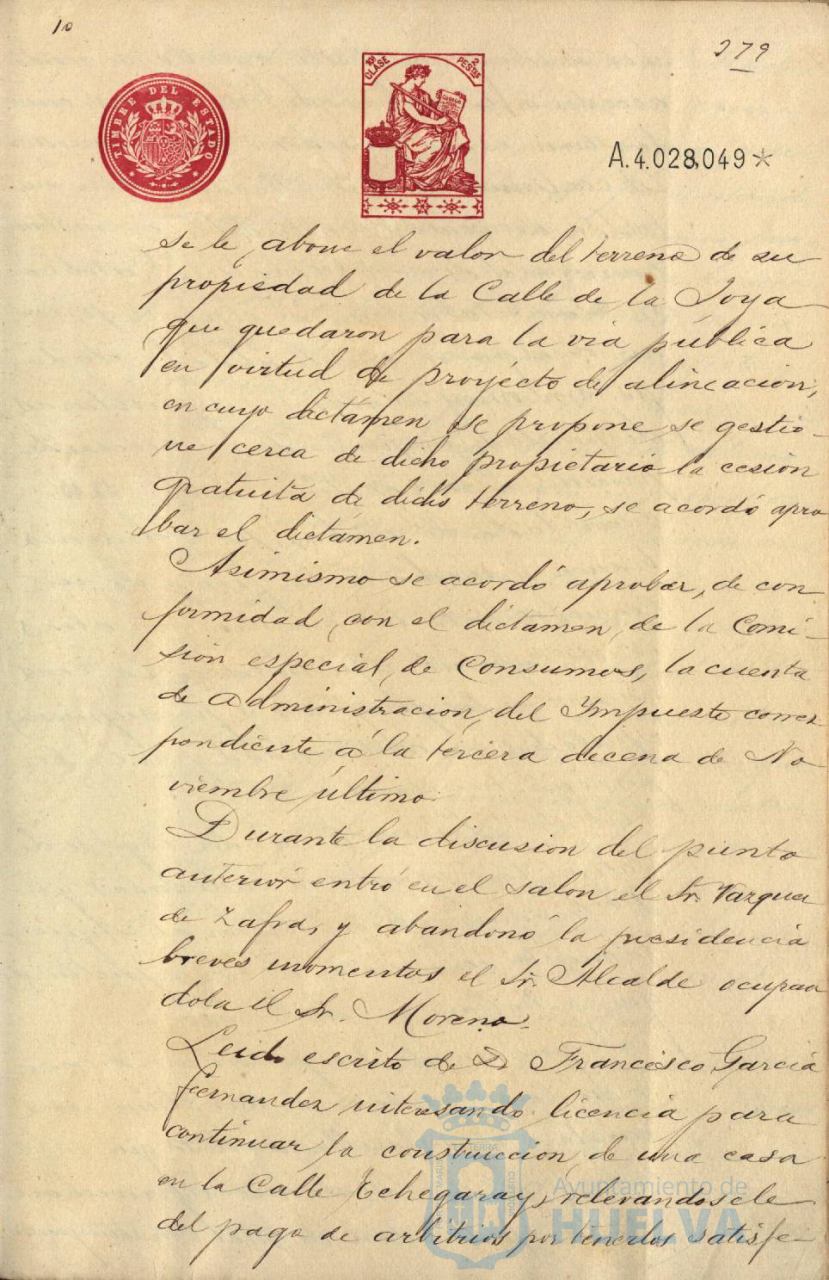 10
279
TIMBRE DEL ESTADO
10ª CLASE 2 PESTAS
A.4.028,049*
se le abone el valor del terreno de su
propiedad de la Calle de la Joya
que quedaron para la via pública
en virtud de proyecto de alineacion,
en cuyo dictámen se propone se gestio-
ne cerca de dicho propietario la cesión
gratuita de dicho terreno, se acordó apro
bar el dictámen.
Asimismo se acordó aprobar, de con
formidad con el dictamen de la Comi-
sión especial de Consumos, la cuenta
de administracion del Impuesto corres
pondiente á la tercera decena de No
viembre último.
Durante la discusion del punto
anterior entró en el salon el Sr. Vazquez
de Zafra, y abandonó la presidencia
breves momentos el Sr. Alcalde ocupan
dola el Sr. Moreno.
Leido escrito de D. Francisco Garcia
Fernandez interesando licencia para
continuar la construccion de una casa
en la Calle Echegaray, relevandosele
del pago de arbitrios por tenerlos satisfe-
Ayuntamiento de
HUELVA